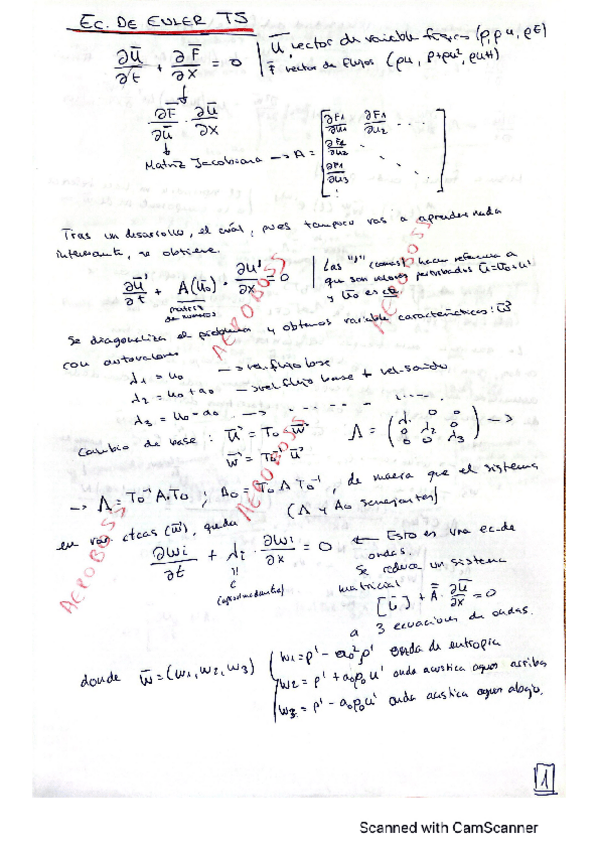 EC. DE EULER TS
∂Ū/∂t + ∂F̄/∂x = 0 | Ū, vector de variable (ρ, ρu, ρE)
F̄ vector de flujos (ρu, p+ρu², ρuH)
∂F̄/∂ū · ∂ū/∂x
Matriz Jacobiana → A = [∂F1/∂u1 ∂F1/∂u2 ...
∂F2/∂u2
∂F1/∂u3
Tras un desarrollo, el cuál, pues tampoco vas a aprender nada
interesante, se obtiene.
∂ū'/∂t + A(ū₀) · ∂ū'/∂x = 0 | Las "'" (comas) hacen referencia a
que son valores perturbados ū=ū₀+ū'
y ū₀ es cte
matriz
de numeros
Se diagonaliza el problema y obtenos variable características: w̄'
con autovalores
λ1 = u₀ → vel. flujo base
λ2 = u₀ + a₀ → vel flujo base + vel. sonido
λ3 = u₀ - a₀ → - - - - - .....
Cambio de base: ū' = T₀ · w̄' Λ = (λ1 0 0
0 λ2 0
0 0 λ3) →
w̄' = T₀⁻¹ ū'
→ Λ = T₀⁻¹ A₀ T₀ ; A₀ = T₀ Λ T₀⁻¹, de maera que el sistema
(Λ y A₀ semejantes)
en var ctcas (w̄), queda
∂wi/∂t + λi · ∂wi/∂x = 0 ← Esto es una ec. de
ondas.
c
Se reduce un sistema
matricial
[ū] + Ā · ∂ū/∂x = 0
a 3 ecuaciones de ondas.
donde w̄ = (w1, w2, w3) { w1 = ρ' - a₀²ρ' onda de entropia
w2 = p' + a₀ρ₀u' onda acustica aguas arriba
w3 = p' - a₀ρ₀u' onda acustica aguas abajo.
AEROBOSS
AEROBOSS
AEROBOSS
AEROBOSS
1
Scanned with CamScanner